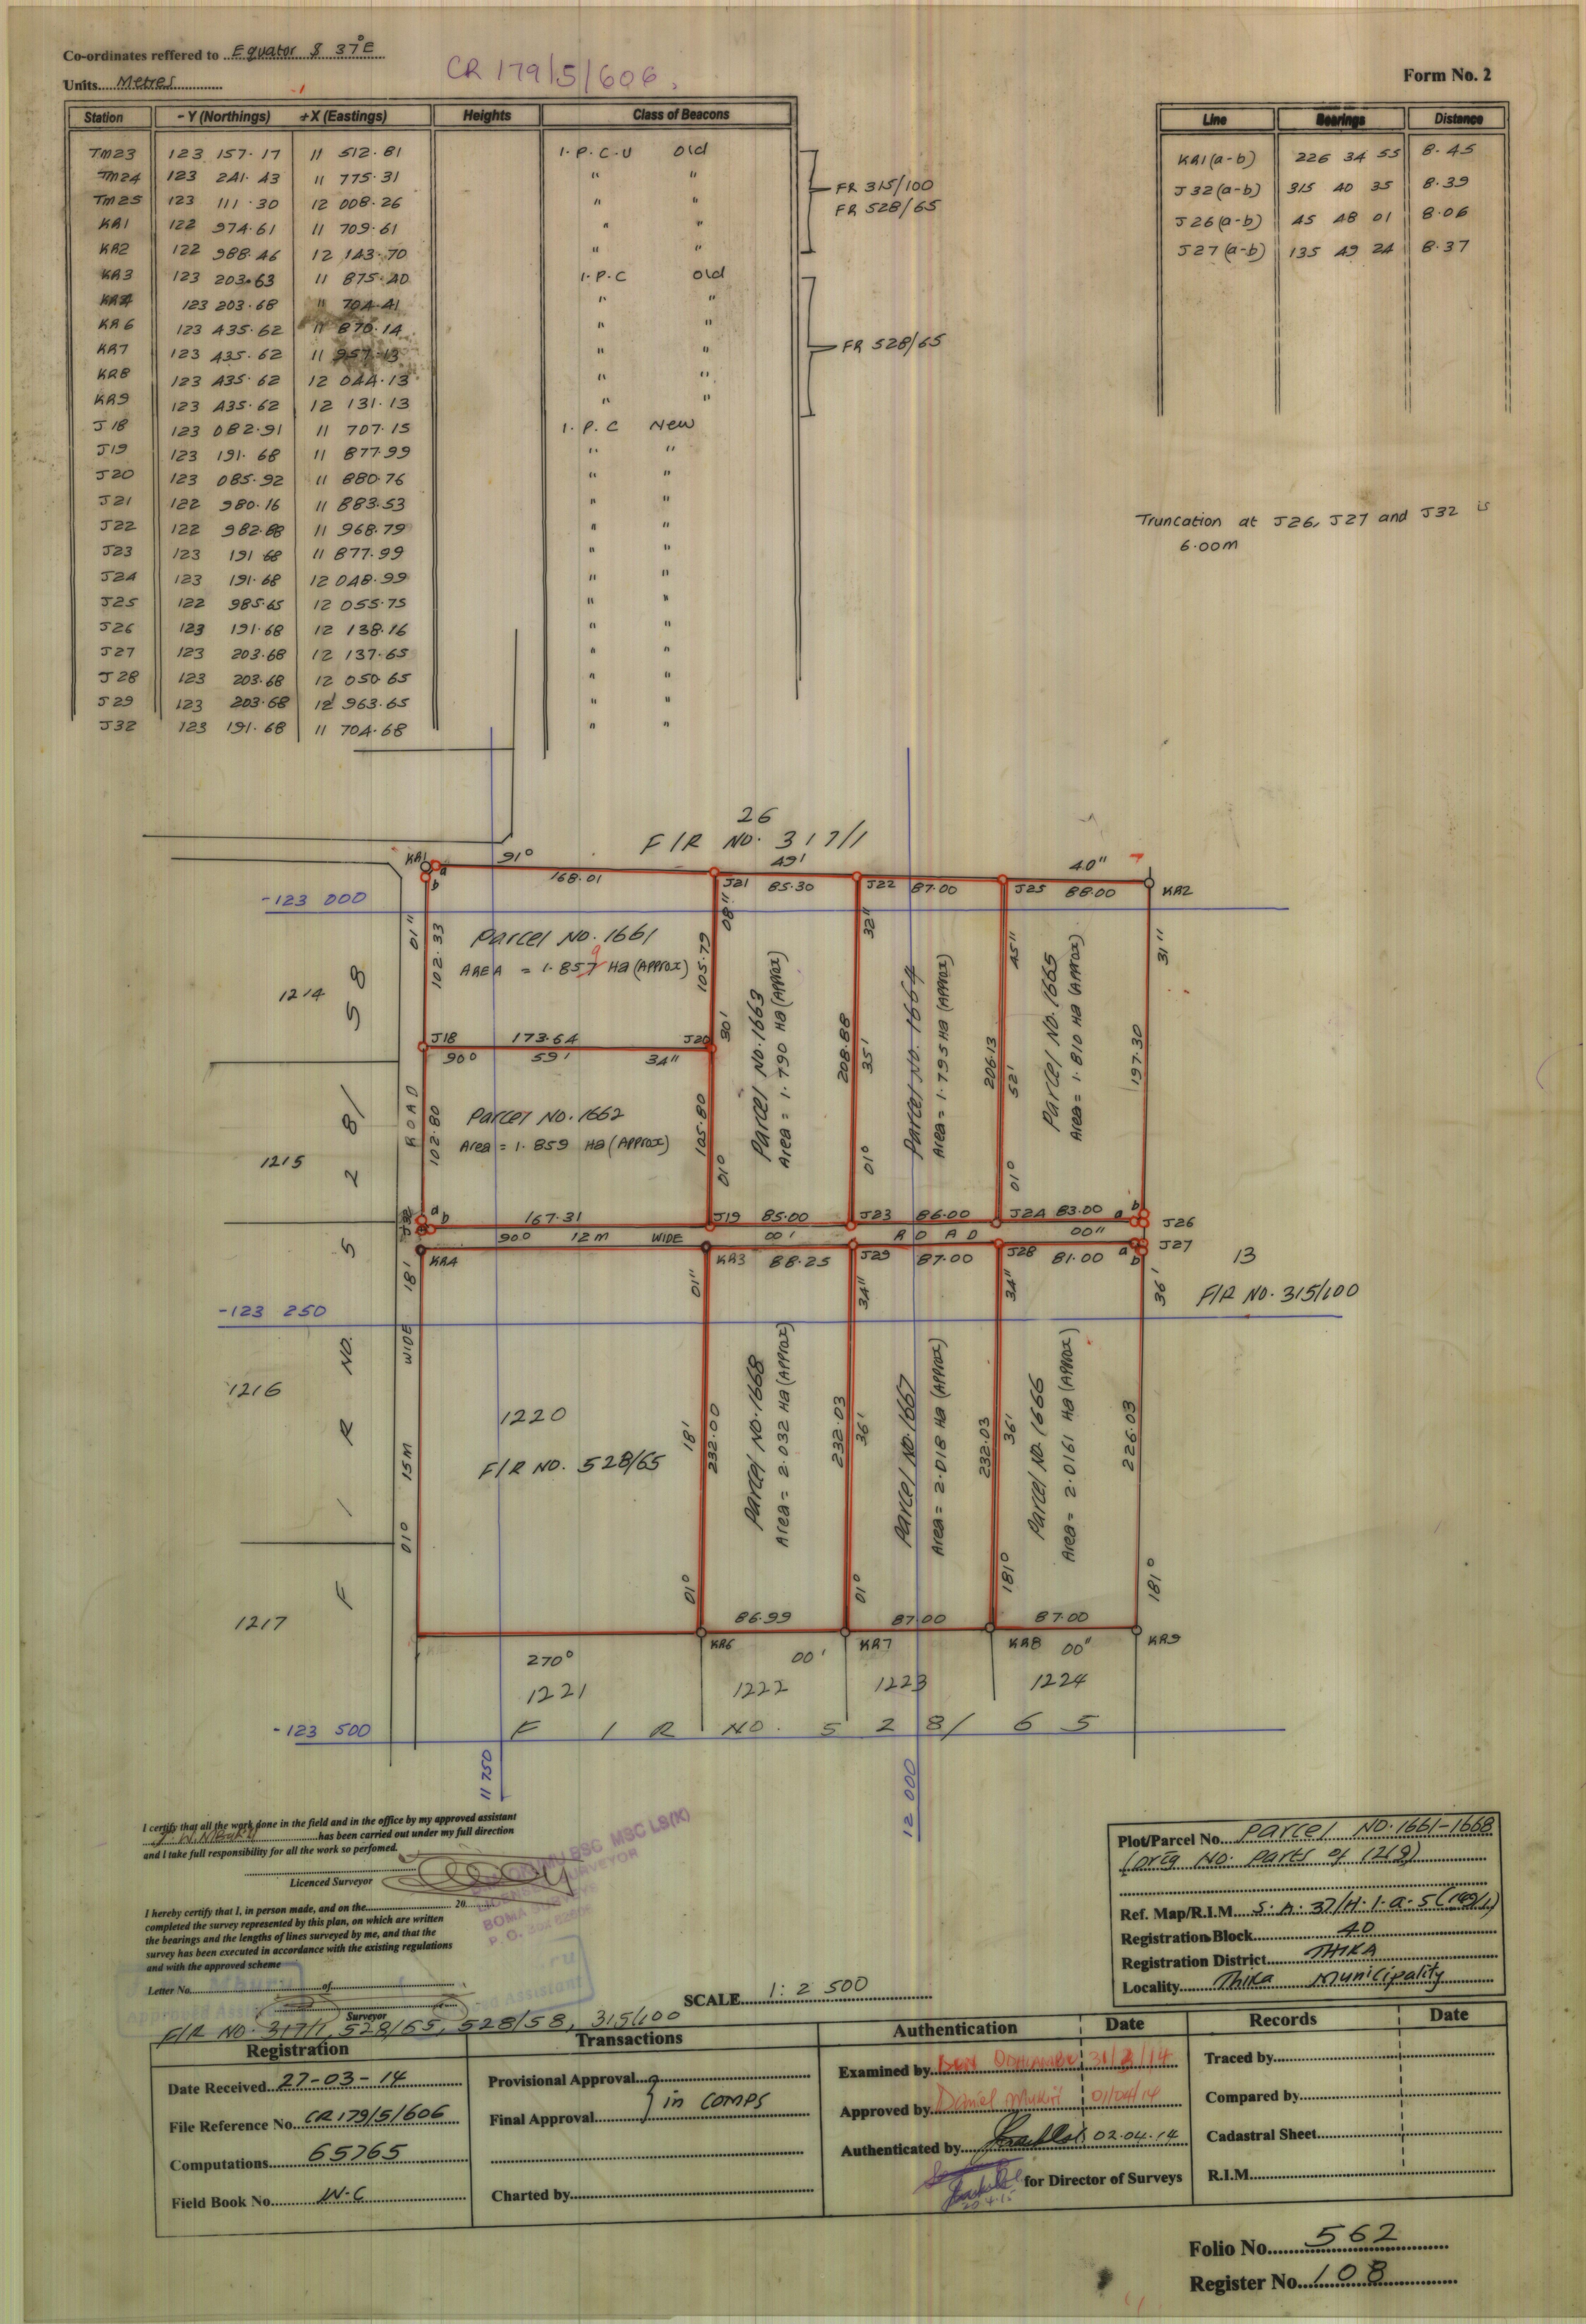 Co-ordinates reffered to Equator & 37°E
Units Metres
CR 179/5/606
Form No. 2
Station - Y (Northings) +X (Eastings) Heights Class of Beacons
TM23 123 157.17 11 512.81 I.P.C.U Old
TM24 123 241.43 11 775.31 " "
TM25 123 111.30 12 008.26 " "
KR1 122 974.61 11 709.61 " "
KR2 122 988.46 12 143.70 " "
FR 315/100
FR 528/65
KR3 123 203.63 11 875.40 I.P.C Old
KR4 123 203.68 11 704.41 " "
KR6 123 435.62 11 870.14 " "
KR7 123 435.62 11 957.13 " "
KR8 123 435.62 12 044.13 " "
KR9 123 435.62 12 131.13 " "
FR 528/65
J18 123 082.91 11 707.15 I.P.C New
J19 123 191.68 11 877.99 " "
J20 123 085.92 11 880.76 " "
J21 122 980.16 11 883.53 " "
J22 122 982.88 11 968.79 " "
J23 123 191.68 11 877.99 " "
J24 123 191.68 12 048.99 " "
J25 122 985.65 12 055.75 " "
J26 123 191.68 12 138.16 " "
J27 123 203.68 12 137.65 " "
J28 123 203.68 12 050.65 " "
J29 123 203.68 12 963.65 " "
J32 123 191.68 11 704.68 " "
Line Bearings Distance
KR1(a-b) 226 34 55 8.45
J32(a-b) 315 40 35 8.39
J26(a-b) 45 48 01 8.06
J27(a-b) 135 49 24 8.37
Truncation at J26, J27 and J32 is
6.00m
26
F/R NO. 317/1
KR1 a b 91° 168.01 J21 49' 85.30 J22 87.00 J25 40" 88.00 KR2
-123 000
01" 102.33
Parcel NO. 1661
AREA = 1.857 9 Ha (Approx)
105.79 08"
32"
45"
31"
1214
J18 173.64 J20
90° 59' 34"
30'
Parcel NO. 1663
Area = 1.790 Ha (Approx)
208.88 35' 01°
Parcel NO. 1664
Area = 1.795 Ha (Approx)
206.13 52' 01°
Parcel NO. 1665
Area = 1.810 Ha (Approx)
197.30
ROAD
102.80
Parcel NO. 1662
Area = 1.859 Ha (Approx)
105.80 01°
1215
J32 a b 167.31 J19 85.00 J23 86.00 J24 83.00 a b J26
90° 12m WIDE 00' ROAD 00"
KR4 KR3 88.25 J29 87.00 J28 81.00 a b J27
13
F/R NO. 315/100
-123 250
18' 01" 34" 34" 36'
1216
F/R NO. 528/58
WIDE
15M
01°
1220
F/R NO. 528/65
18' 232.00 01°
Parcel NO. 1668
Area = 2.032 Ha (Approx)
232.03 36' 01°
Parcel NO. 1667
Area = 2.018 Ha (Approx)
232.03 36' 181°
Parcel NO. 1666
Area = 2.0161 Ha (Approx)
226.03 181°
1217
86.99 87.00 87.00
KR6 KR7 KR8 KR9
270° 00' 00"
1221 1222 1223 1224
F/R NO. 528/65
-123 500
11 750
12 000
I certify that all the work done in the field and in the office by my approved assistant
has been carried out under my full direction
and I take full responsibility for all the work so perfomed.
Licenced Surveyor
BSC MSC LS(K)
I hereby certify that I, in person made, and on the 20
completed the survey represented by this plan, on which are written
the bearings and the lengths of lines surveyed by me, and that the
survey has been executed in accordance with the existing regulations
and with the approved scheme
Letter No. of
Surveyor
F/R NO. 317/1, 528/65, 528/58, 315/100
SCALE 1: 2 500
Plot/Parcel No. Parcel NO. 1661-1668
(orig NO. Parts of 1219)
Ref. Map/R.I.M. S.A. 37/H.1.a.5 (149/1)
Registration Block 40
Registration District THIKA
Locality Thika Municipality
Registration
Date Received 27-03-14
File Reference No. CR179/5/606
Computations 65765
Field Book No. IN-C
Transactions
Provisional Approval
in COMPS
Final Approval
Charted by
Authentication Date
Examined by Ben Odhiambo 31/3/14
Approved by Daniel 01/04/14
Authenticated by 02.04.14
for Director of Surveys
Records Date
Traced by
Compared by
Cadastral Sheet
R.I.M.
Folio No. 562
Register No. 108